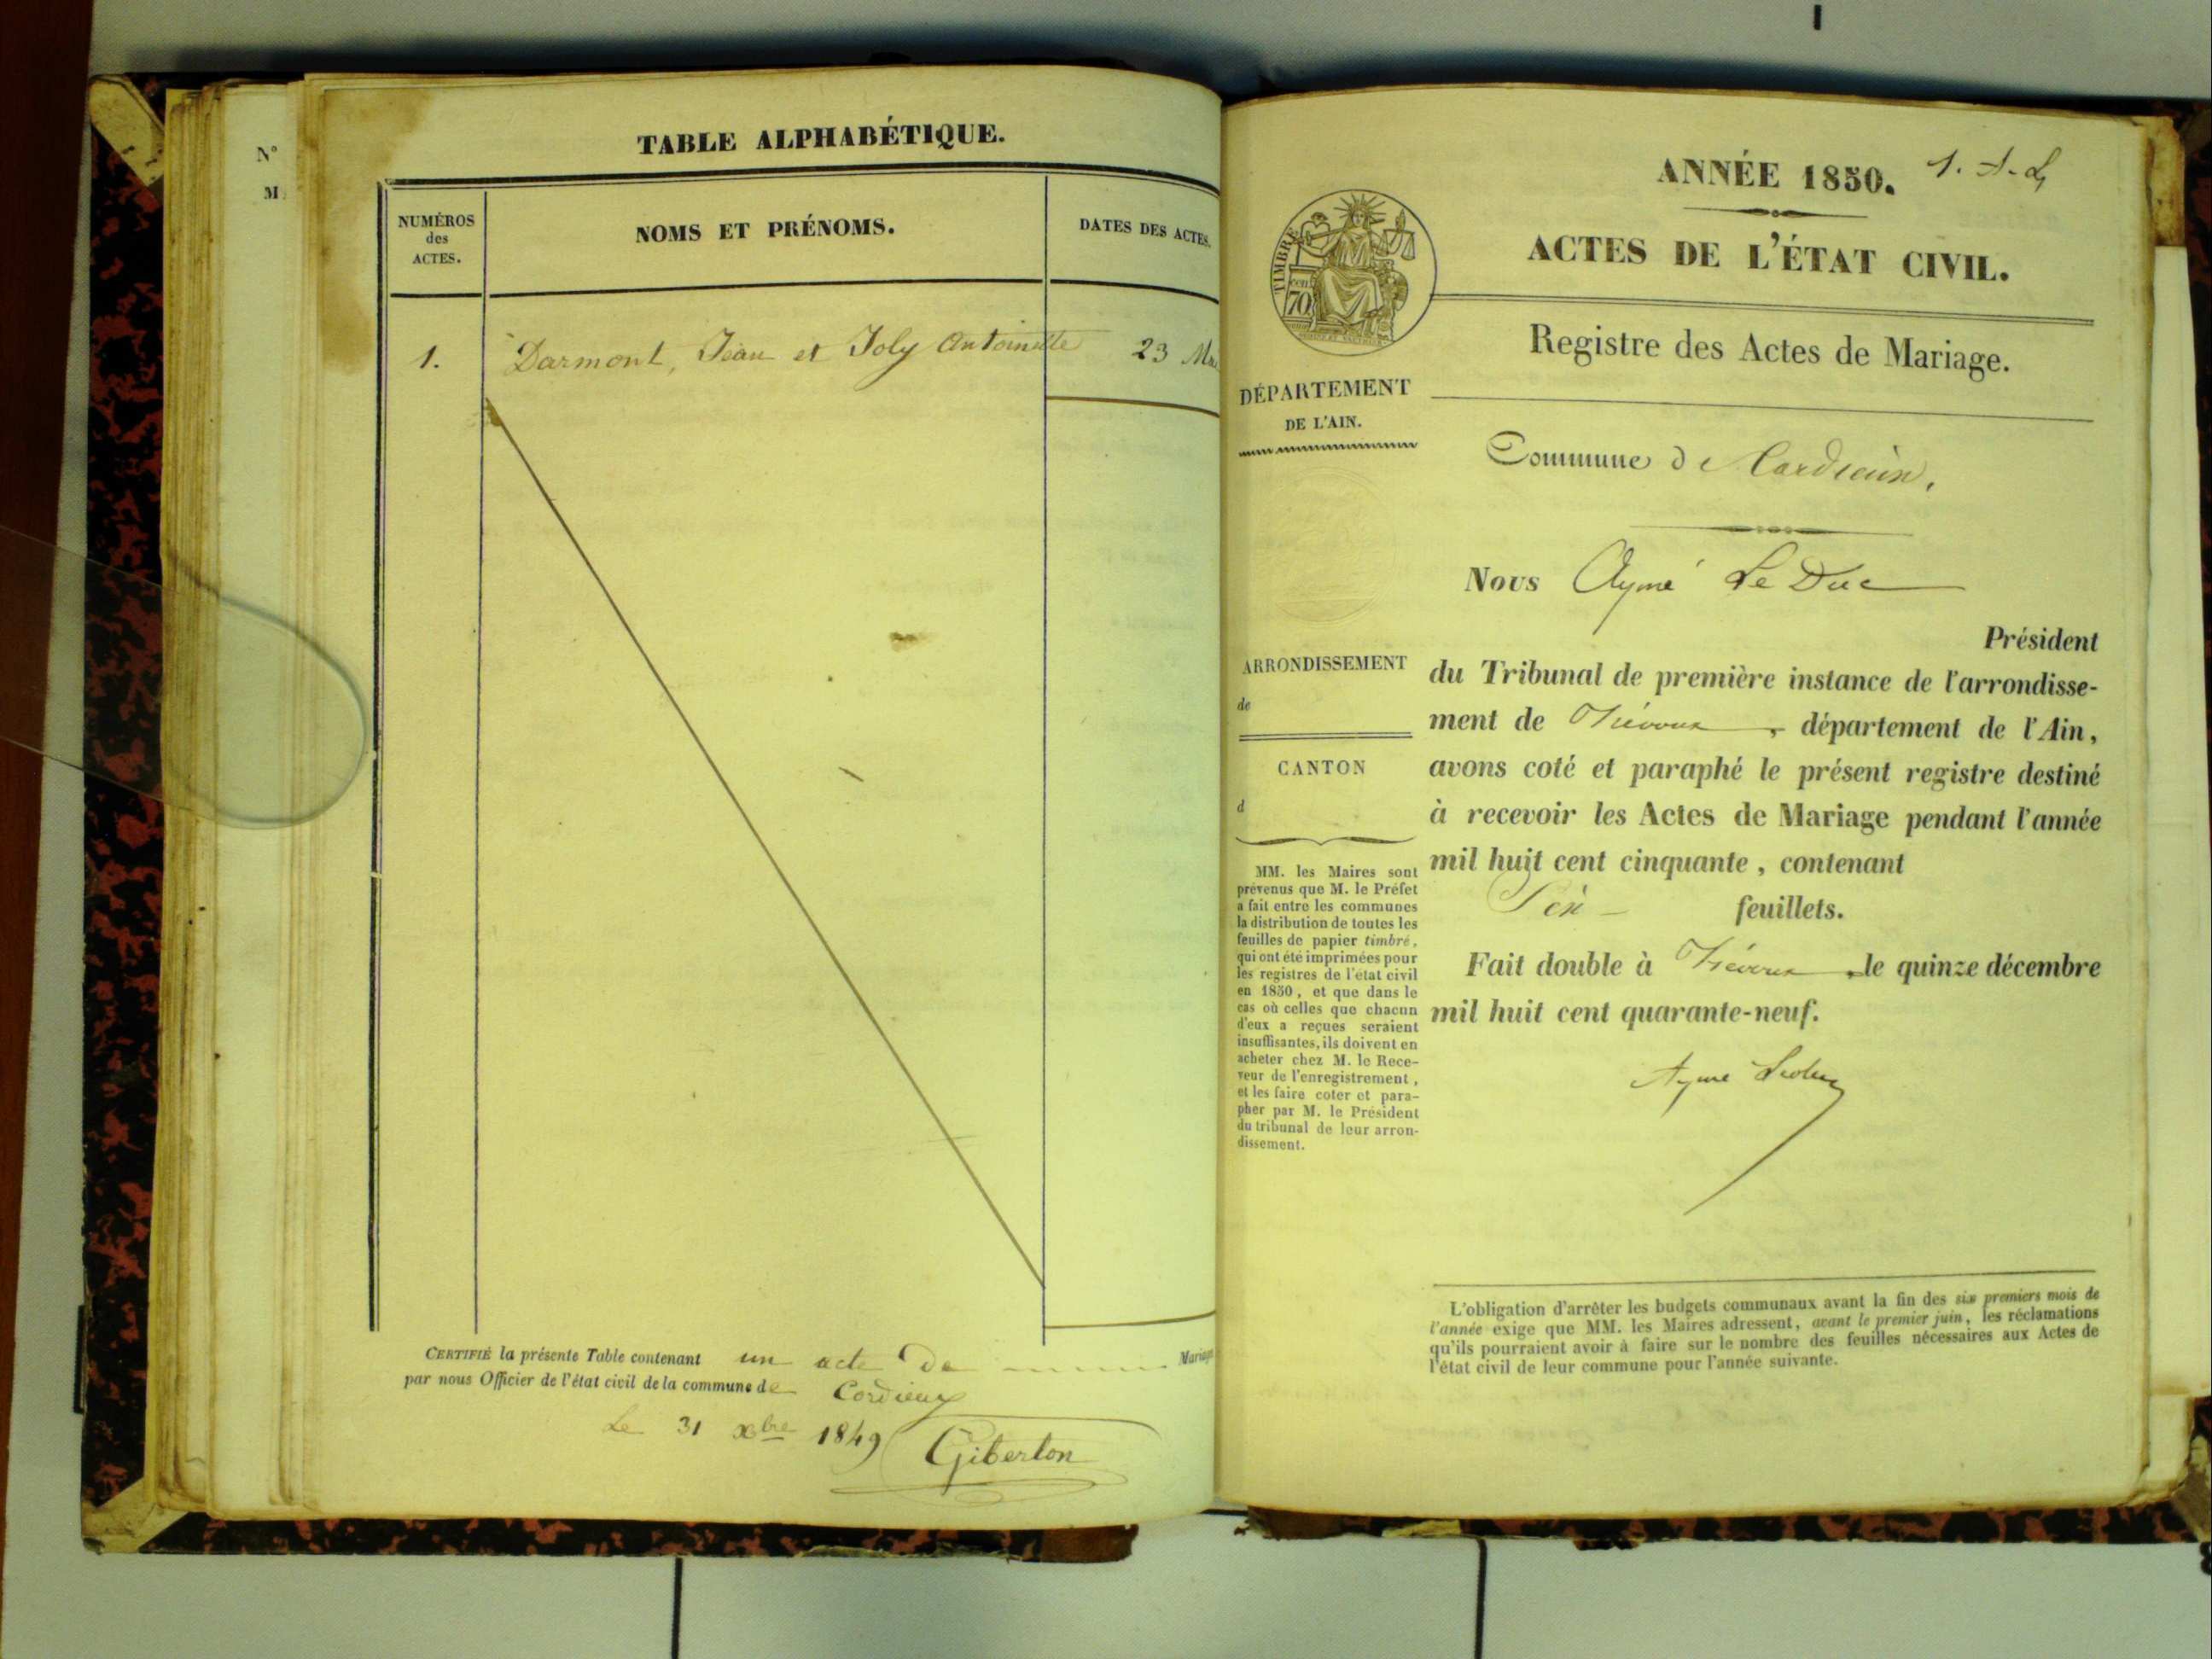 N°
M.
TABLE ALPHABÉTIQUE.
NUMÉROS
des
ACTES.
NOMS ET PRÉNOMS.
DATES DES ACTES.
1. Darmont, Jean et Joly Antoinette 23
CERTIFIÉ la présente Table contenant un acte de Mariage
par nous Officier de l'état civil de la commune de Cordieux
Le 31 xbre 1849 Giberton
ANNÉE 1850. 1. A. L
ACTES DE L'ÉTAT CIVIL.
Registre des Actes de Mariage.
TIMBRE
70
DÉPARTEMENT
DE L'AIN.
Commune de
Nous Aymé Le Duc
Président
du Tribunal de première instance de l'arrondisse-
ment de Trévoux, département de l'Ain,
avons coté et paraphé le présent registre destiné
à recevoir les Actes de Mariage pendant l'année
mil huit cent cinquante, contenant
feuillets.
Fait double à Trévoux, le quinze décembre
mil huit cent quarante-neuf.
Ayme Leduc
ARRONDISSEMENT
de
CANTON
d
MM. les Maires sont
prévenus que M. le Préfet
a fait entre les communes
la distribution de toutes les
feuilles de papier timbré,
qui ont été imprimées pour
les registres de l'état civil
en 1850, et que dans le
cas où celles que chacun
d'eux a reçues seraient
insuffisantes, ils doivent en
acheter chez M. le Rece-
veur de l'enregistrement,
et les faire coter et para-
pher par M. le Président
du tribunal de leur arron-
dissement.
L'obligation d'arrêter les budgets communaux avant la fin des six premiers mois de
l'année exige que MM. les Maires adressent, avant le premier juin, les réclamations
qu'ils pourraient avoir à faire sur le nombre des feuilles nécessaires aux Actes de
l'état civil de leur commune pour l'année suivante.